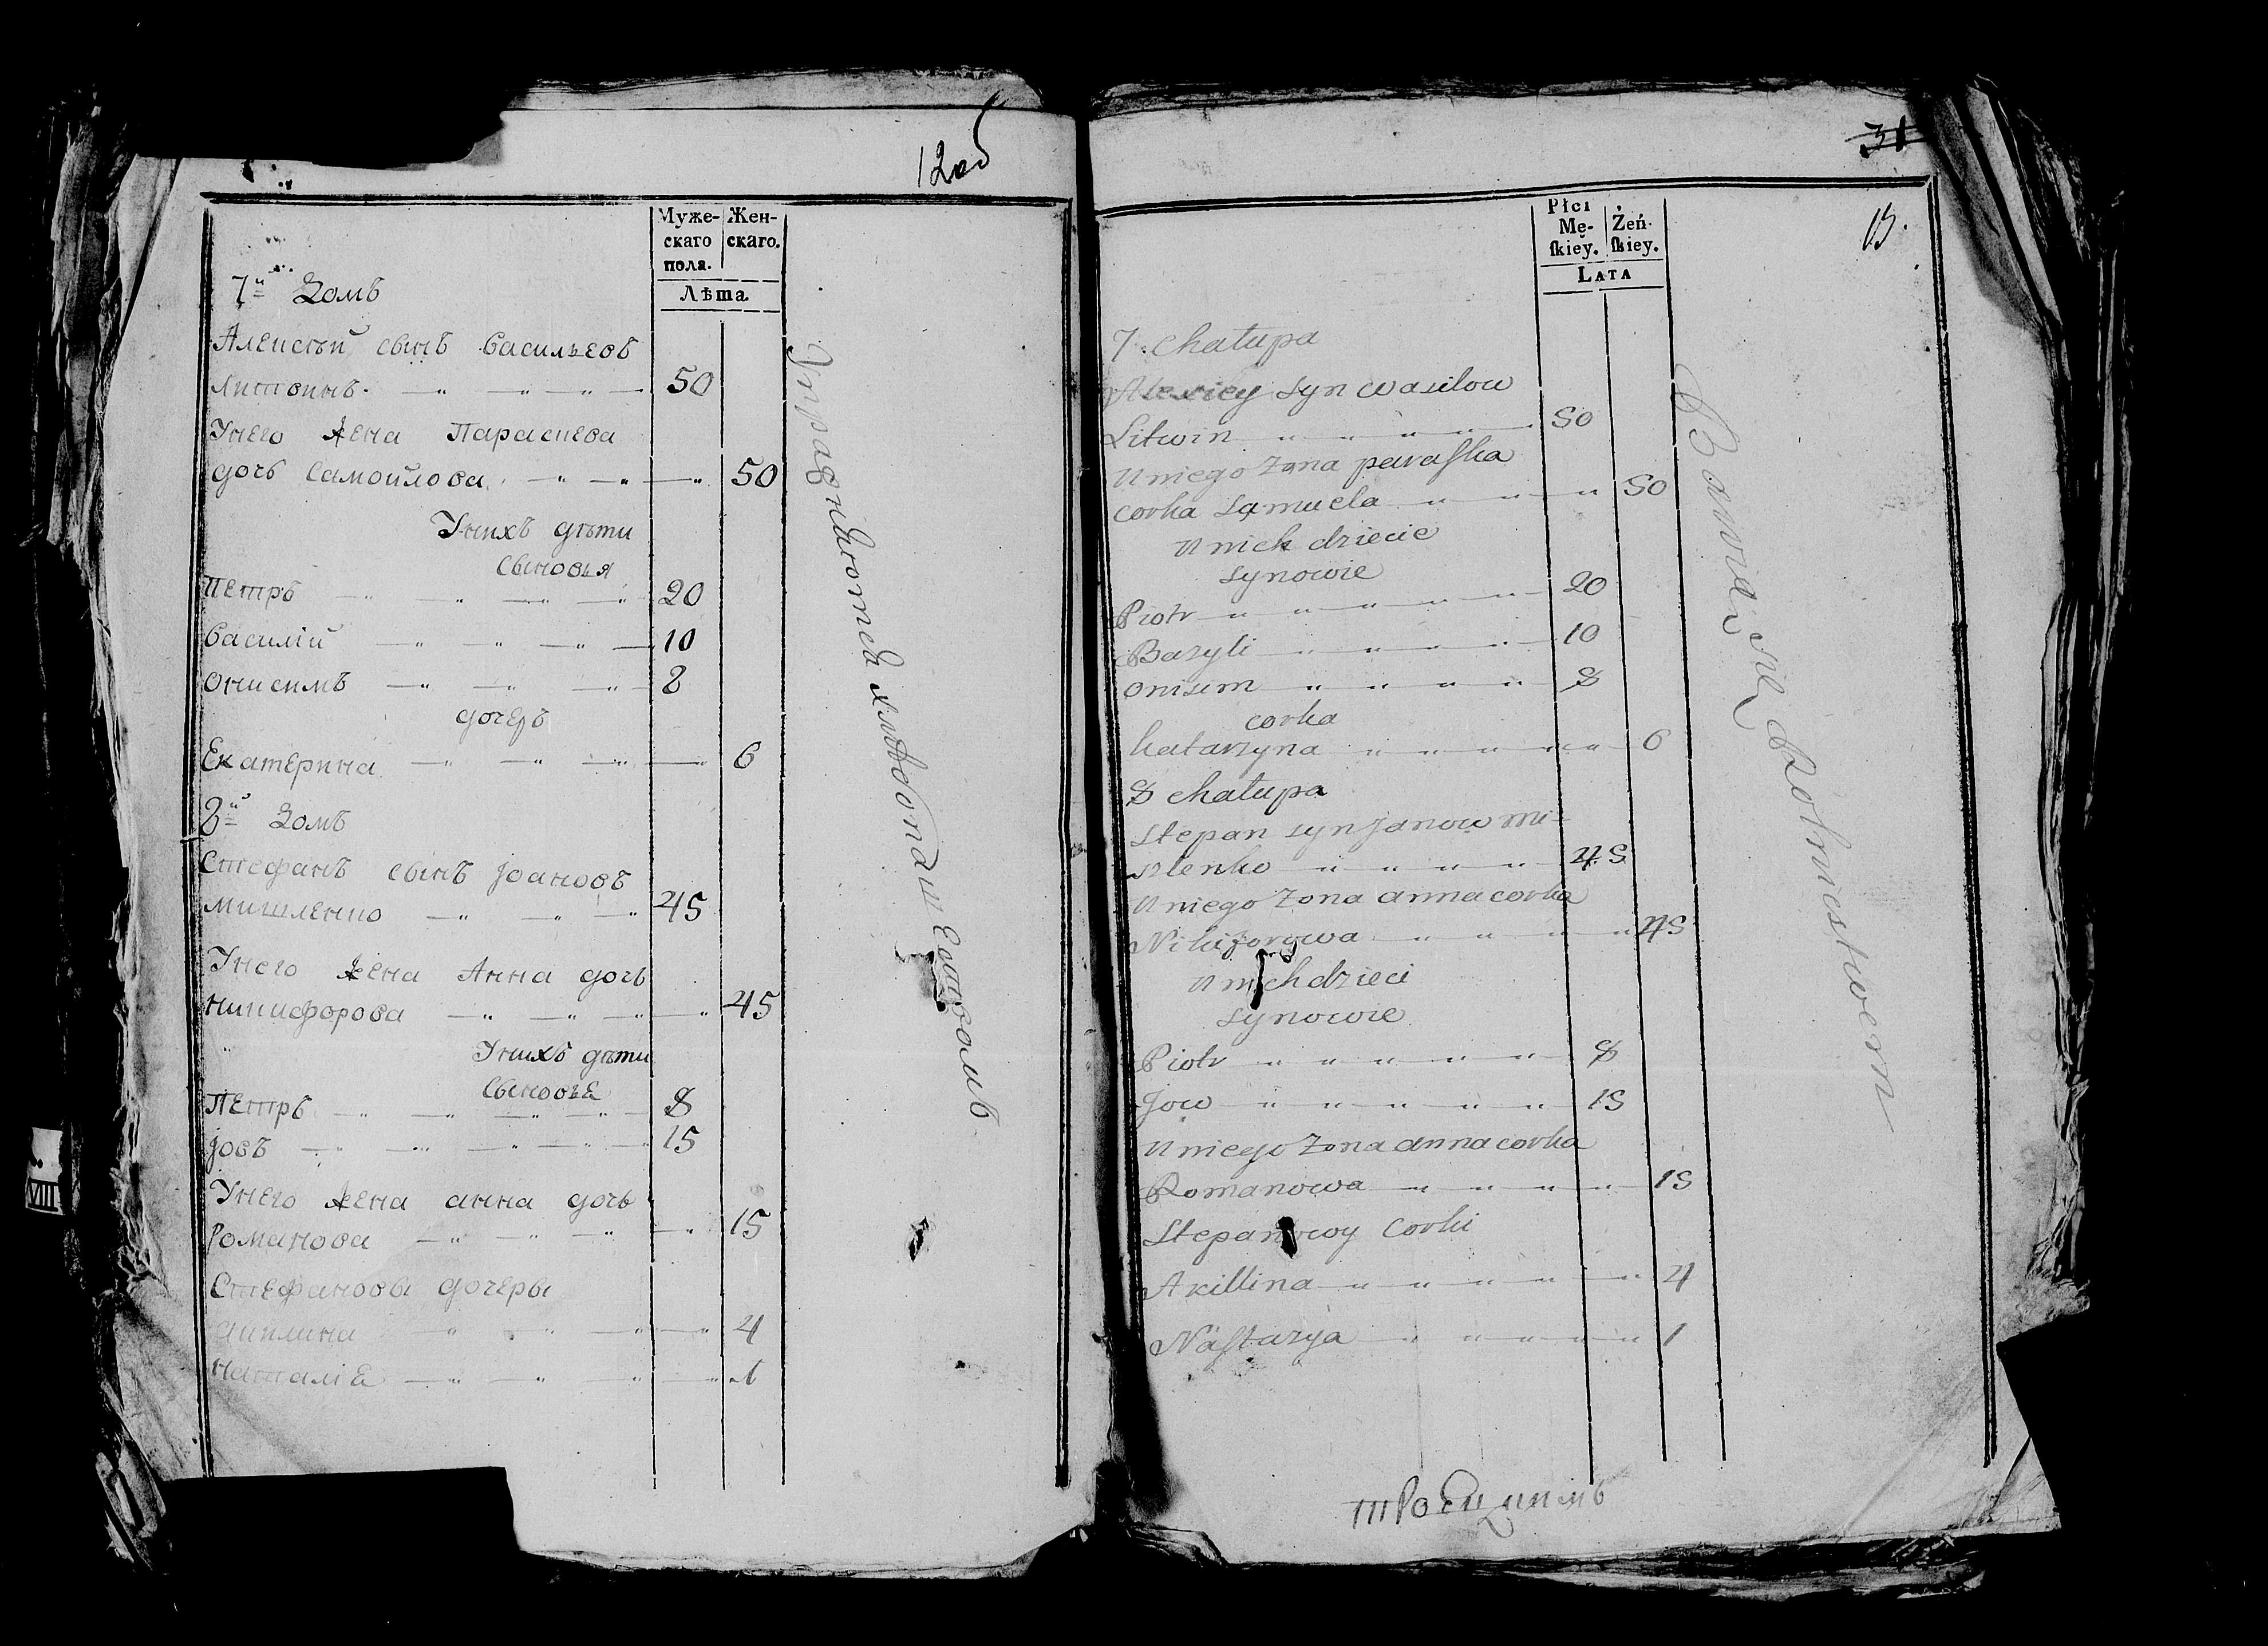 12об
Муже-
скаго
пола.
Жен-
скаго.
Лѣта
7й Домъ
Алексѣй сынъ Васильевъ
Литвинъ 50
Унего жена Параскева
дочь Самойлова 50
Унихъ дѣти
сыновья
Петръ 20
Василій 10
Онисимъ 8
дочеръ
Екатерина 6
8й Домъ
Стефанъ сынъ Іоановъ
Мишленко 45
Унего жена Анна дочь
Никифорова 45
Унихъ дѣти
сыновье
Петръ 8
Іовъ 15
Унего жена анна дочь
Романова 15
Стефановы дочеры
Акилина 4
Наталіа 1
Упражняются хлѣбопашествомъ
31
13.
Płci
Mę-
ſkiey.
Żeń-
ſkiey.
Lata
7. chałupa
Alexiey syn wasilow
Litwin 50
U niego zona paraſka
corka samuela 50
U nich dziecie
synowie
Piotr 20
Bazyli 10
onisim 8
corka
katarzyna 6
8 chałupa
stepan syn janow mi-
szlenko 45
U niego zona anna corka
Nikiforowa 45
U nich dzieci
synowie
Piotr 8
Jow 15
U niego zona anna corka
Romanowa 15
Stepanowoy corki
Akillina 4
Naſtazya 1
Bawią się Rolniestwem
троецкимъ